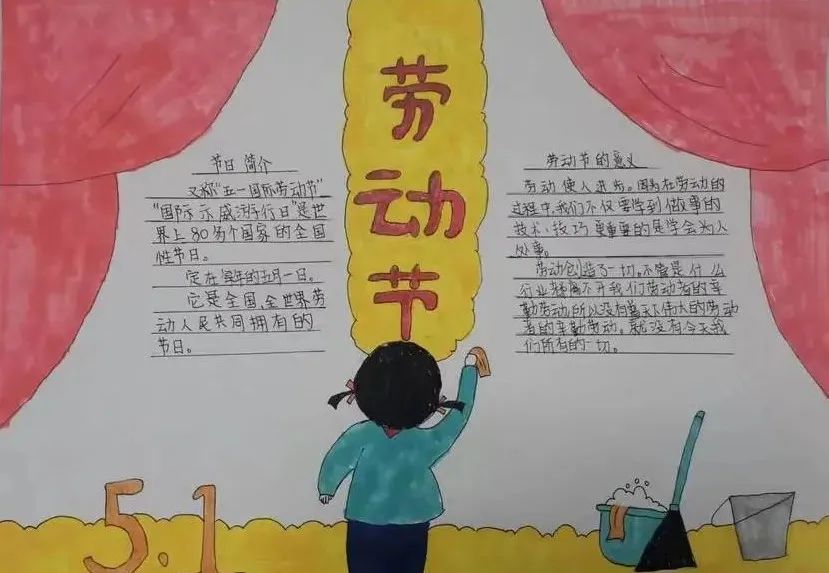 劳动节
节日简介
又称"五一国际劳动节"
"国际示威游行日"是世
界上80多个国家的全国
性节日。
定在每年的五月一日。
它是全国、全世界劳
动人民共同拥有的
节日。
劳动节的意义
劳动使人进步。因为在劳动的
过程中,我们不仅要学到做事的
技术、技巧 更重要的是学会为人
处事。
劳动创造了一切。不管是什么
行业都离不开我们劳动者的辛
勤劳动,所以没有普天下伟大的劳动
者的辛勤劳动。就没有今天我
们所有的一切。
5.1